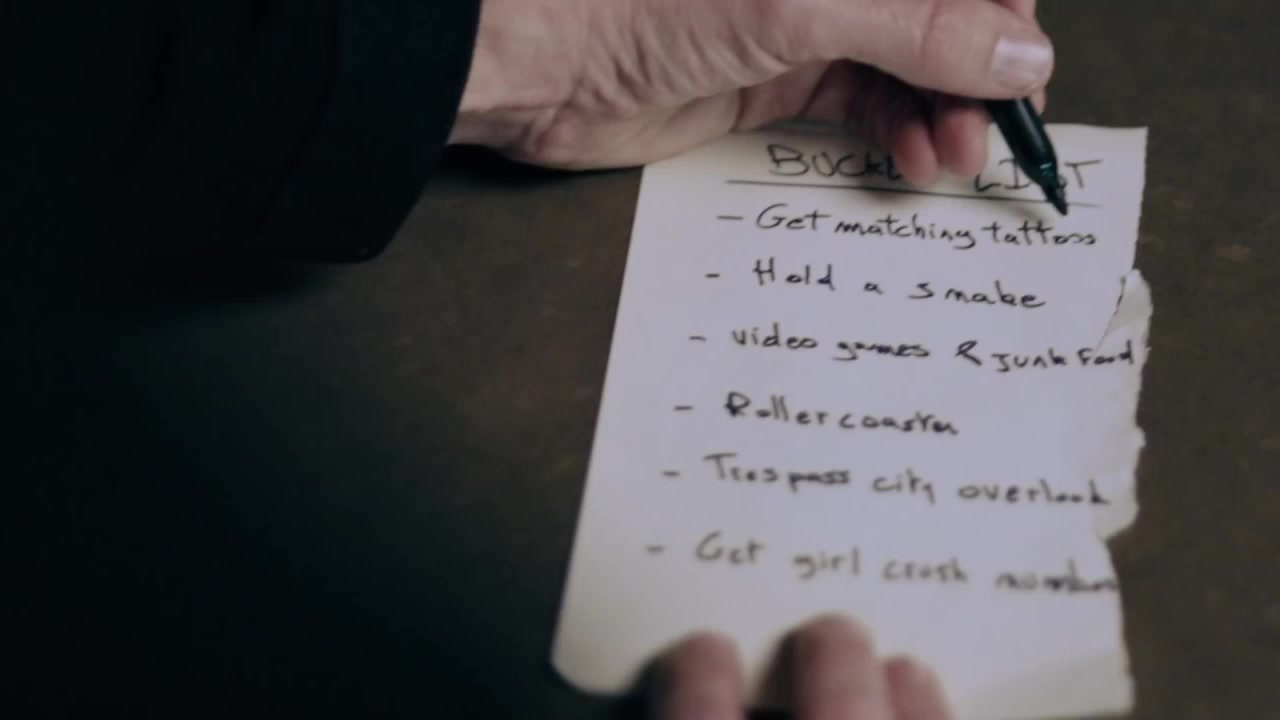 BUCKET LIST
- Get matching tattoos
- Hold a snake
- video games & junk food
- Rollercoaster
- Trespass city overlook
- Get girl crush number